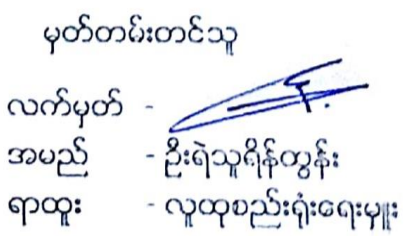 မှတ်တမ်းတင်သူ
လက်မှတ် -
အမည် - ဦးရဲသူရိန်ထွန်း
ရာထူး - လူထုစည်းရုံးရေးမှူး